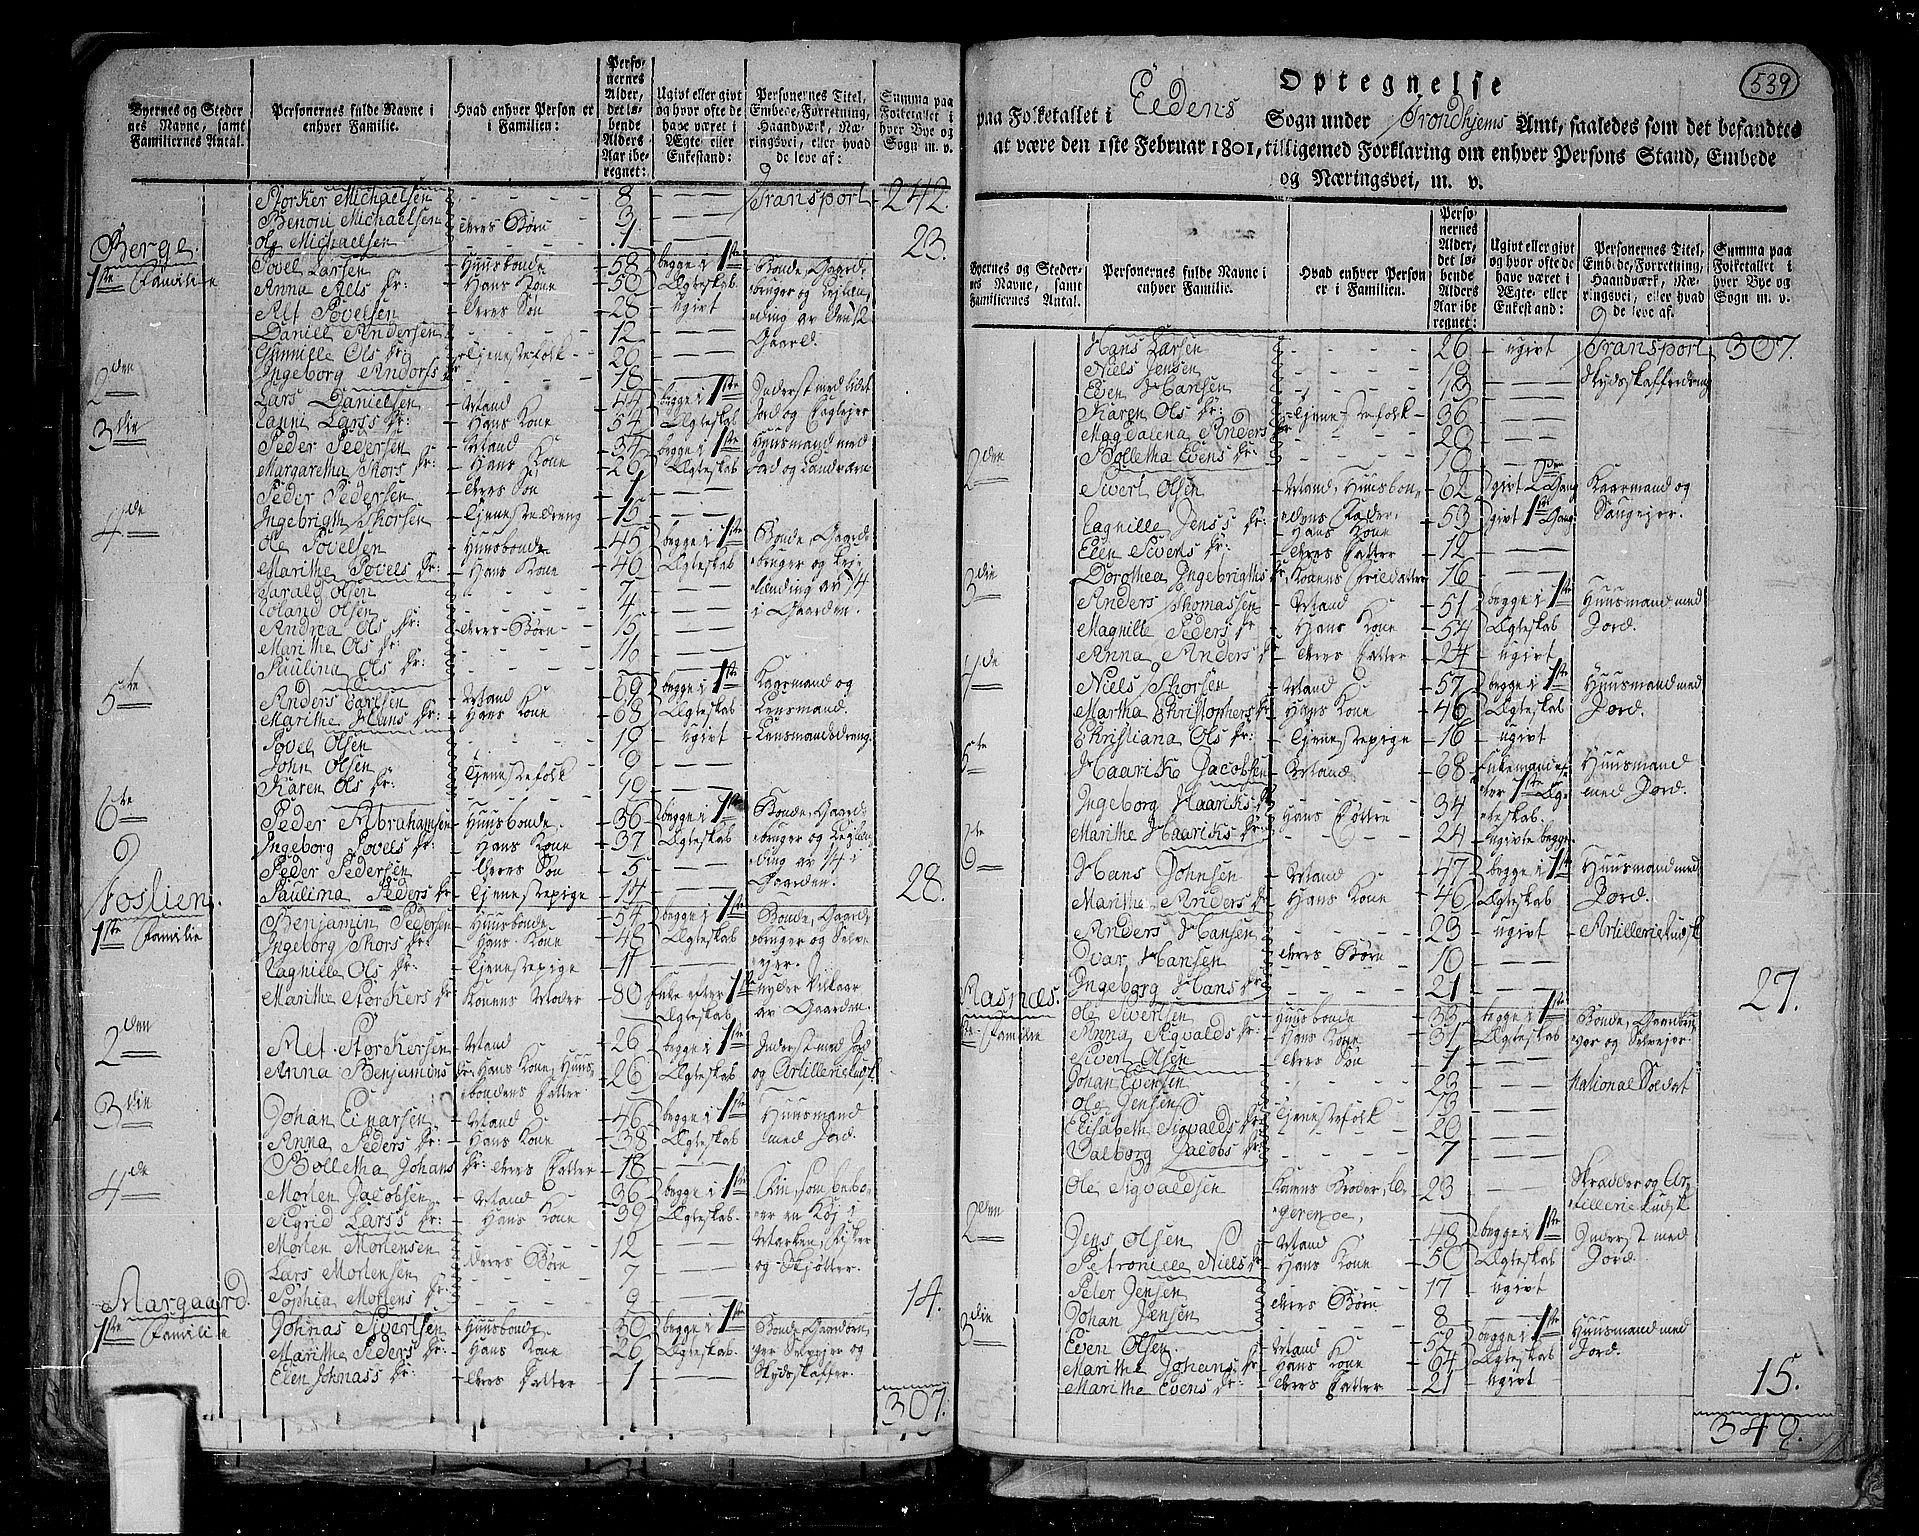 Byernes og Steder
nes Navne, samt
Familiernes Antal.
Personernes fulde Navne i
enhver Familie.
Hvad enhver Person er
i Familien:
Perso-
nernes
Alder,
det lø-
bende
Alders
Aar ibe-
regnet:
Ugivt eller givt
og hvor ofte de
have været i
Ægte- eller
Enkestand:
Personernes Titel,
Embede, Forretning,
Haandværk, Næ-
ringsvei, eller hvad
de leve af:
Summa paa
Folketallet i
hver Bye og
Sogn m. v.
Storcker Michaelsen 8 Transport 242.
Benoni Michaelsen deres Børn 3
Ole Michaelsen 1 23.
Berge.
1ste Familie Povel Larsen Huusbonde 58 begge i 1ste Bonde, Gaard-
Anna Als Dr: Hans Kone 50 Ægteskab
Alt Povelsen deres Søn 28 Ugivt
Daniel Andersen 12 Gaard
Gunnille Ols Dr: Tjenestefolk 20
Ingeborg Anders Dr 18
2den Lars Danielsen Mand 44 begge i 1ste Inderst med lidet
Lars Dr: Hans Kone 54 Ægteskab
3die Peder Pedersen Mand 34 begge i 1ste Huusmand med
Margaretha Thors Dr: Hans Kone 26 Ægteskab
Peder Pedersen deres Søn 1
Ingebrigth Thorsen Tjenestedreng 15
4de Ole Povelsen Huusbonde 45 begge i 1ste Bonde, Gaard-
Marithe Povels Dr: Hans Kone 46 Ægteskab
Olsen 7
Olsen 4 i Gaarden.
Andrea Ols Dr: deres Børn 15
Marithe Ols Dr:
Paulina Ols Dr:
5te Anders Larsen Mand 69 begge i 1ste Kaarmand og
Marithe Hans Dr: Hans Kone 68 Ægteskab Lensmand.
Povel Olsen Ugivt Lensmandsdreng.
John Olsen Tjenestefolk 9
Karen Ols Dr:
6te Peder Abrahamsen Huusbonde 36 begge i 1ste Bonde, Gaard-
Ingeborg Povels Dr: Hans Kone 37 Ægteskab
Peder Pedersen deres Søn 5
Paulina Peders Dr Tjenestepige 14 Gaarden. 28.
Foslien.
1ste Familie Benjamin Pedersen Huusbonde 54 begge i 1ste Bonde, Gaard-
Ingeborg Thors Dr: Hans Kone 48 Ægteskab bruger og Selv-
Magnille Ols Dr: Tjenestepige 11 ejer.
Marithe Storckers Dr Konens Moder 80 Enke efter 1ste nyder Vilkaar
Ægteskab av Gaarden.
2den Alt Storckersen Mand 26 begge i 1ste Inderst med Jord
Anna Benjamins Dr: Hans Kone, Huus- 26 Ægteskab og Artilleriekudsk
bondens Datter
3die Johan Einarsen Mand 46 begge i 1ste Huusmand
Anna Peders Dr: Hans Kone 38 Ægteskab med Jord.
Bolletha Johans Dr: deres Datter 18
4de Morten Jacobsen Mand 36 begge i 1ste
Sigrid Larss Dr: Hans Kone 39 Ægteskab
Morten Mortensen deres Børn 12
Lars Mortensen 7 og Skytter.
Sophia Mortens Dr: 9 14.
Margaard.
1ste Familie Johnas Sivertsen Huusbonde 30 begge i 1ste Bonde Gaardbru-
Marithe Peders Dr: Hans Kone 26 Ægteskab ger Selvejer og
Elen Johnass Dr: deres Datter 1 Skydsskaffer.
307.
539
Optegnelse
paa Folketallet i Eedens Sogn under Trondhjems Amt, saaledes som det befandtes
at være den 1ste Februar 1801, tilligemed Forklaring om enhver Persons Stand, Embede
og Næringsvei, m. v.
Byernes og Steder-
nes Navne, samt
Familiernes Antal.
Personernes fulde Navne i
enhver Familie.
Hvad enhver Person
er i Familien.
Perso-
nernes
Alder,
det lø-
bende
Alders
Aar ibe-
regnet:
Ugivt eller givt
og hvor ofte de
have været i
Ægte- eller
Enkestand:
Personernes Titel,
Embede, Forretning,
Haandværk, Næ-
ringsvei, eller hvad
de leve af:
Summa paa
Folketallet i
hver Bye og
Sogn m. v.
Hans Larsen 26 ugivt Transport 307.
Niels Jensen Skydsskafferdreng
Even Hansen 13
Karen Ols Dr: Tjenestefolk 36
Magdalena Anders Dr 20
Bolletha Evens Dr:
2den Sivert Olsen Mand, Huusbon- 62 givt 2den Gang Kaarmand og
Magnille Jenss Dr: dens Fader, 53 givt 1ste Gang
Hans Kone
Elen Siverts Dr: deres Datter 12
Dorothea Ingebrigths Dr Konens Datter 16
3die Anders Thomassen Mand 51 begge i 1ste Huusmand med
Magnille Peders Dr Hans Kone 54 Ægteskab Jord.
Anna Anders Dr deres Datter 24 ugivt
4de Niels Thorsen Mand 57 begge i 1ste Huusmand med
Martha Christophers Dr Hans Kone 46 Ægteskab Jord.
Christiana Ols Dr: Tjenestepige 16 ugivt
5te Haarik Jacobsen Mand 68 Enkemand ef- Huusmand
ter 1ste Æg- med Jord.
Ingeborg Haariks Dr Hans Døttre 34 teskab
Marithe Haariks Dr: 24 Ugivte begge
6te Hans Johnsen Mand 47 begge i 1ste Huusmand med
Marithe Anders Dr Hans Kone 46 Ægteskab Jord.
Anders Hansen 23 ugivt Artilleriekudsk
Ivar Hansen deres Børn
Ingeborg Hans Dr 21 27.
Aasnæs.
1ste Familie Ole Sivertsen Huusbonde 33 begge i 1ste Bonde, Gaardbru-
Anna Sigvalds Dr: Hans Kone 31 Ægteskab ger og Selvejer.
Sivert Olsen deres Søn 1
Johan Evensen 23 National Soldat
Ole Jensen Tjenestefolk
Elisabeth Sigvalds Dr 20
Valborg Jacobs Dr: 7
Ole Sigvaldsen Konens Broder, lo- 23 Skrædder og Ar-
gerende, tilleriekudsk
2den Jens Olsen Mand 48 begge i 1ste Inderst med
Petronille Niels Dr Hans Kone 50 Ægteskab Jord.
Peter Jensen deres Børn 17 ugivt
Johan Jensen 8
3die Even Olsen Mand 52 begge i 1ste Huusmand med
Marithe Johans Dr Hans Kone 64 Ægteskab Jord.
Marithe Evens Dr: deres Datter 21 ugivt 15.
349.